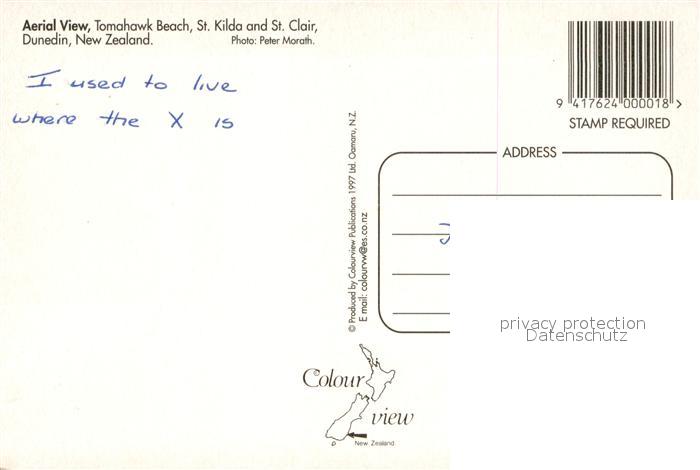 Aerial View, Tomahawk Beach, St. Kilda and St. Clair,
Dunedin, New Zealand. Photo: Peter Morath.
I used to live
where the X is
9 417624 000018 >
STAMP REQUIRED
ADDRESS
© Produced by Colourview Publications 1997 Ltd. Oamaru, N.Z.
E mail: colourvw@es.co.nz
privacy protection
Datenschutz
Colour
view
New Zealand